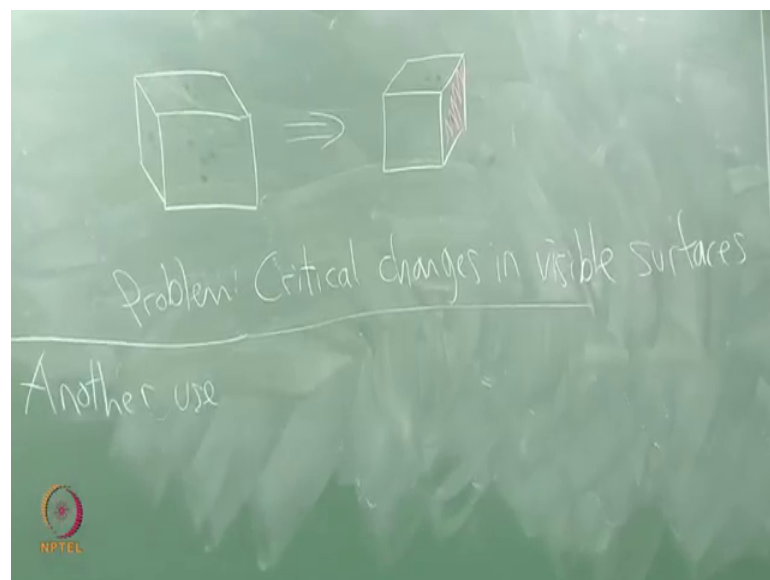 Problem: Critical changes in visible surfaces
Another use
NPTEL